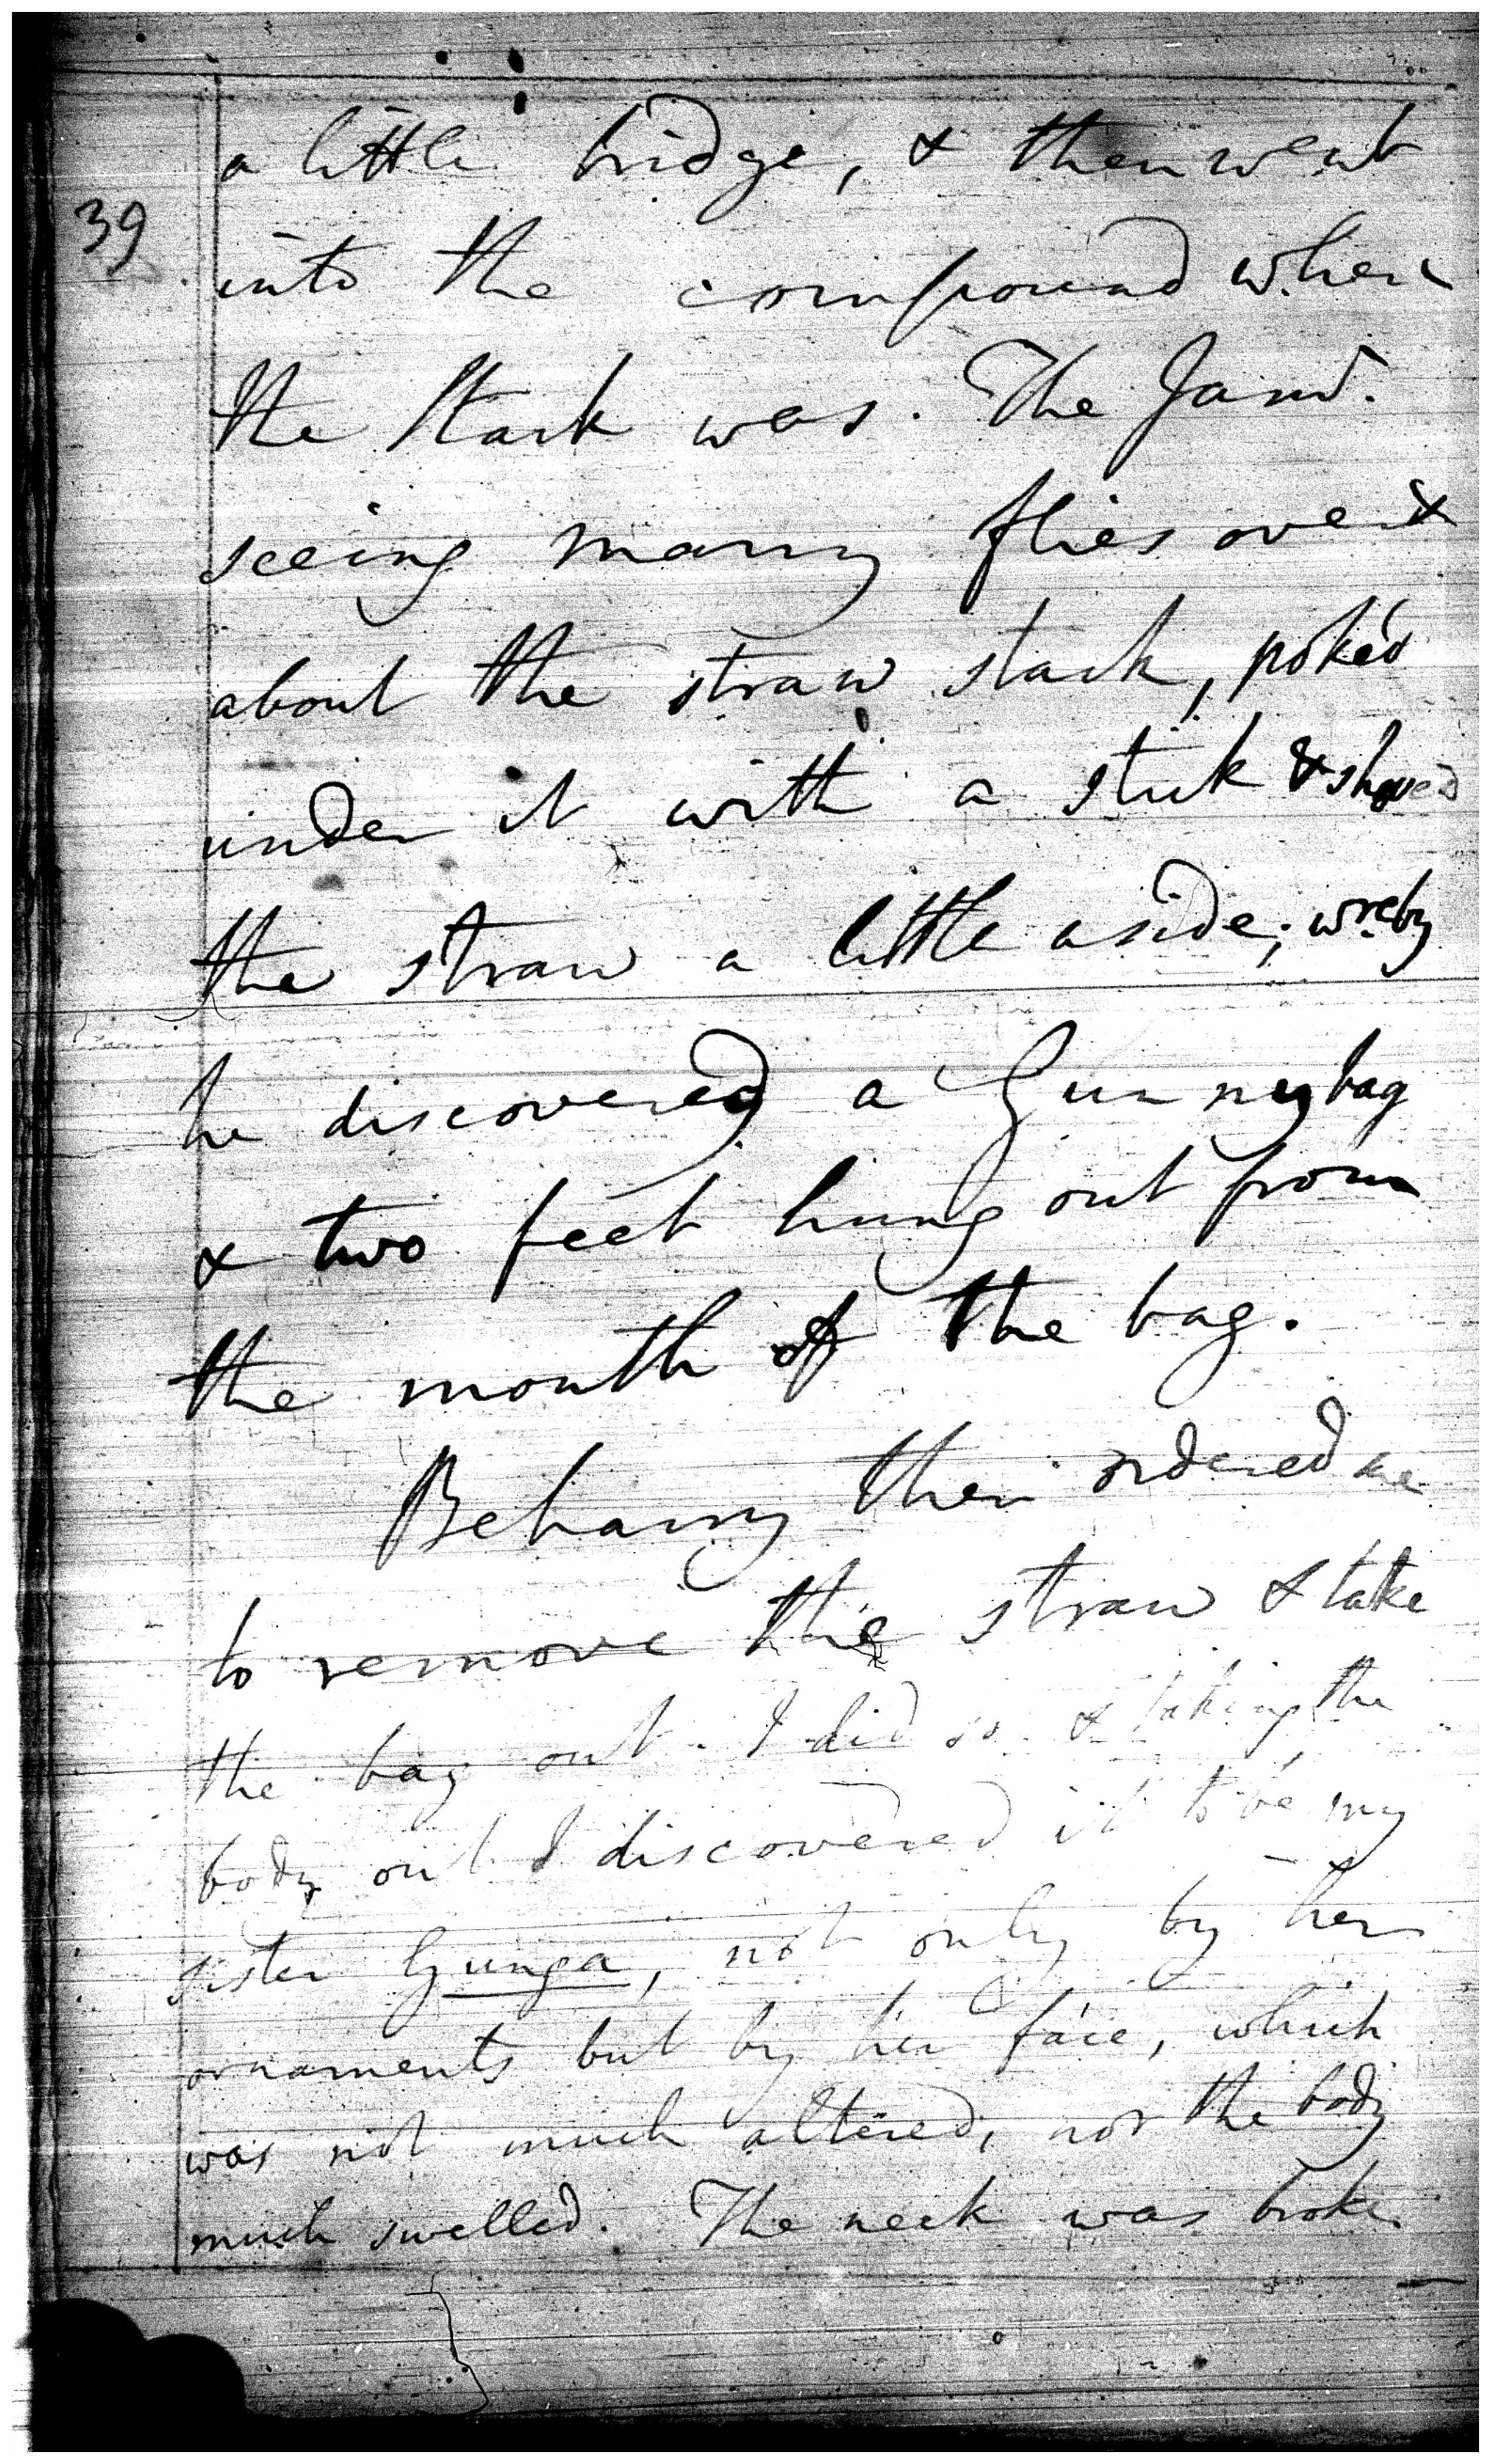 a little bridge, & then went
39
into the compound where
the Stack was. The Jamr.
seeing many flies over &
about the straw stack, poked
under it with a stick & shoved
the straw a little aside; wreby
he discovered a Gunny bag
& two feet hung out from
the mouth of the bag.
Beharry then ordered me
to remove the straw & take
the bag out. I did so & taking the
body out I discovered it to be my
sister Gunga, not only by her
ornaments but by her face, which
was not much altered, nor the body
much swelled. The neck was broke.